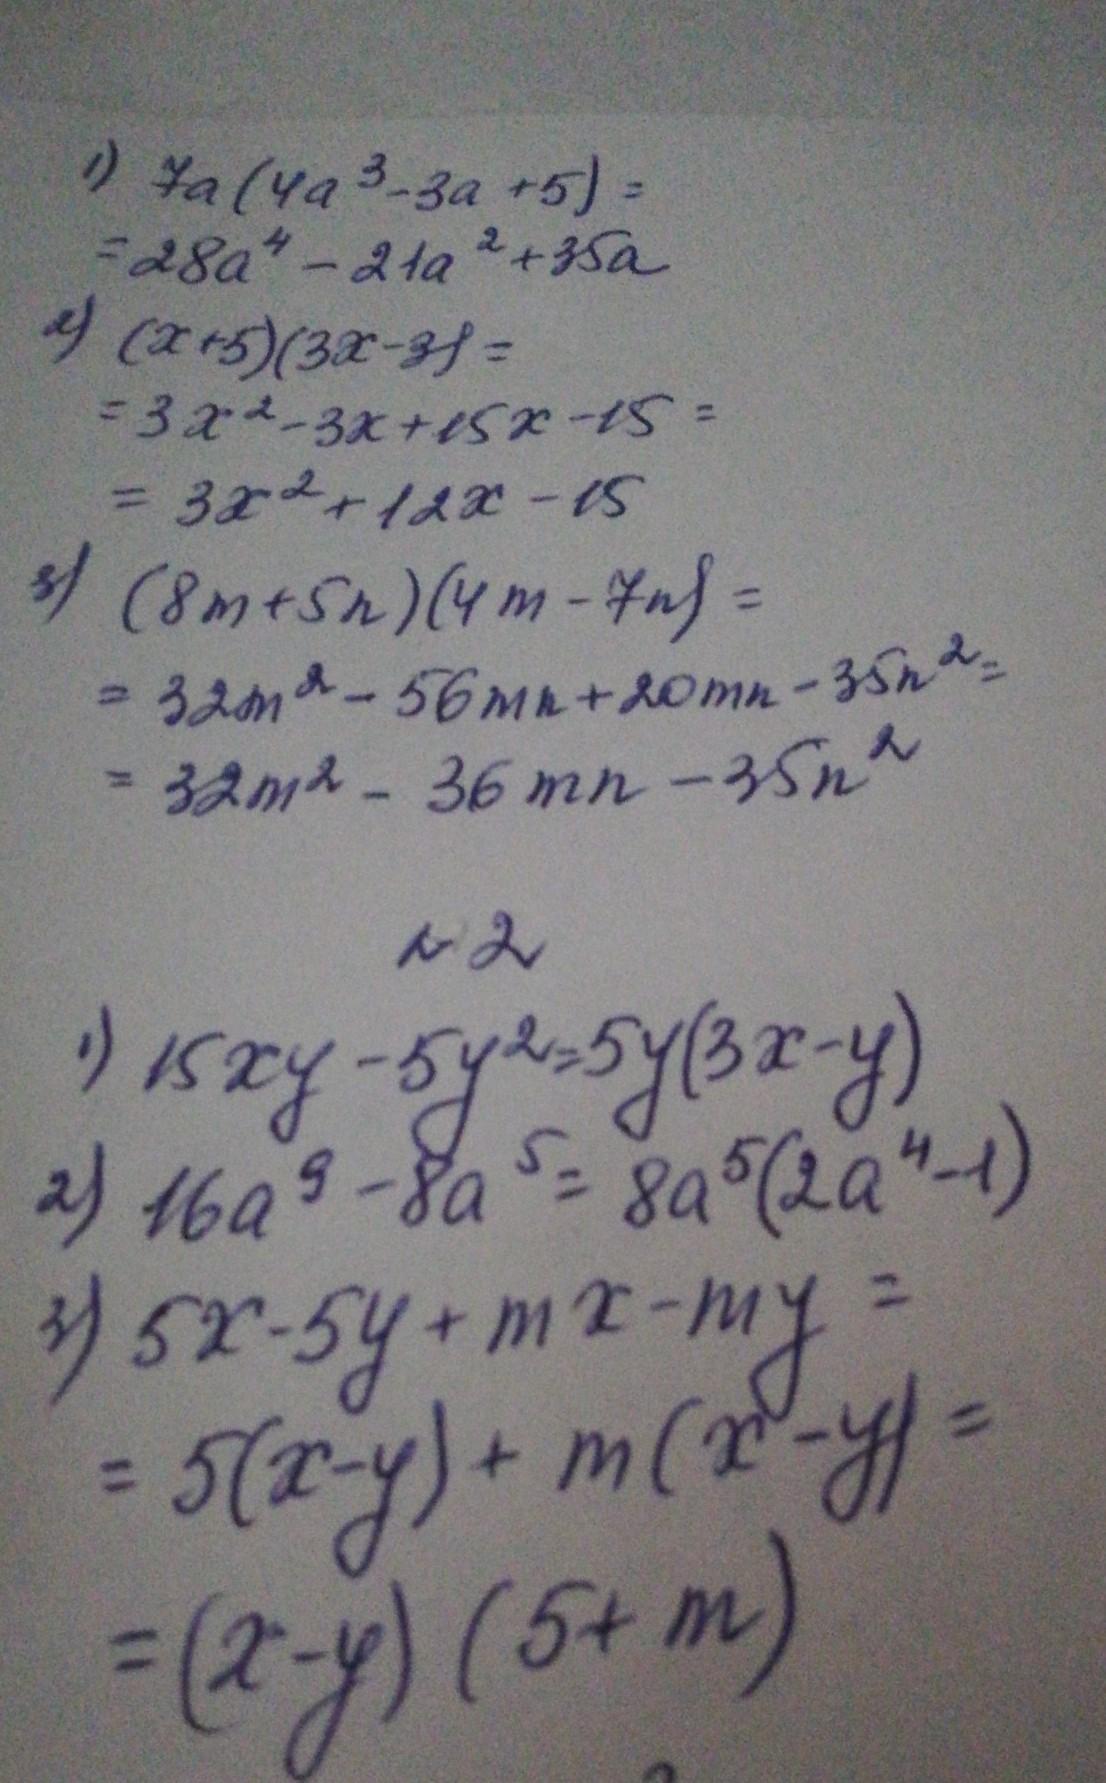 1) 7a(4a³-3a+5)=
=28a⁴-21a²+35a
2) (x+5)(3x-3)=
=3x²-3x+15x-15=
=3x²+12x-15
3) (8m+5n)(4m-7n)=
=32m²-56mn+20mn-35n²=
=32m²-36mn-35n²
№2
1) 15xy-5y²=5y(3x-y)
2) 16a⁹-8a⁵=8a⁵(2a⁴-1)
3) 5x-5y+mx-my=
=5(x-y)+m(x-y)=
=(x-y)(5+m)